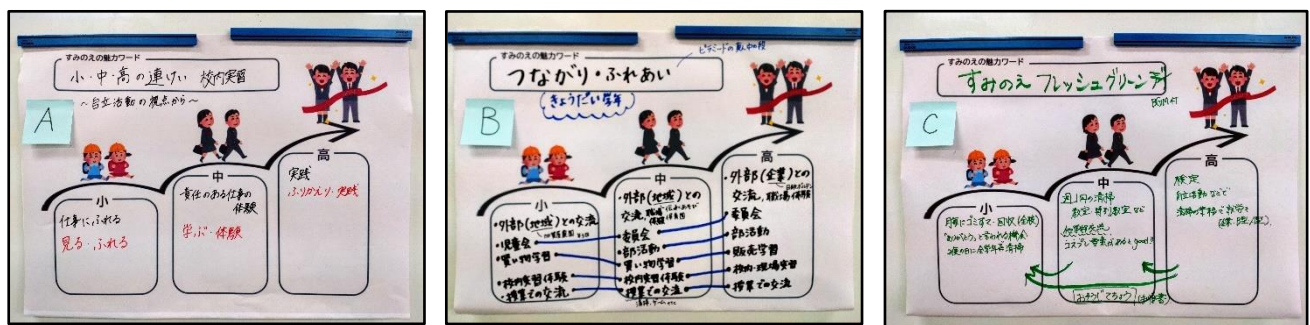 すみのえの魅力ワード
小・中・高の連けい 校内実習
～自立活動の視点から～
A
小
仕事にふれる
見る・ふれる
中
責任のある仕事の
体験
学ぶ・体験
高
実践
ふりかえり・実践
すみのえの魅力ワード
つながり・ふれあい
きょうだい学年
B
小
・外部(地域)との交流
・児童会
・買い物学習
・校内実習体験
・授業での交流
中
・外部(地域)との
交流,職場
体験
・委員会
・部活動
・買い物学習
・校内実習体験
・授業での交流
清掃、ゲームetc
高
・外部(企業)との
交流,職場体験
・委員会
・部活動
・販売学習
・校内・現場実習
・授業での交流
すみのえの魅力ワード
すみのえ フレッシュグリーンデー
BGM付
C
小
月毎にゴミすて・回収(全校)
"ありがとう"と言われる機会
中
週1回の清掃
教室・特別教室など
高
検定
自立活動などで